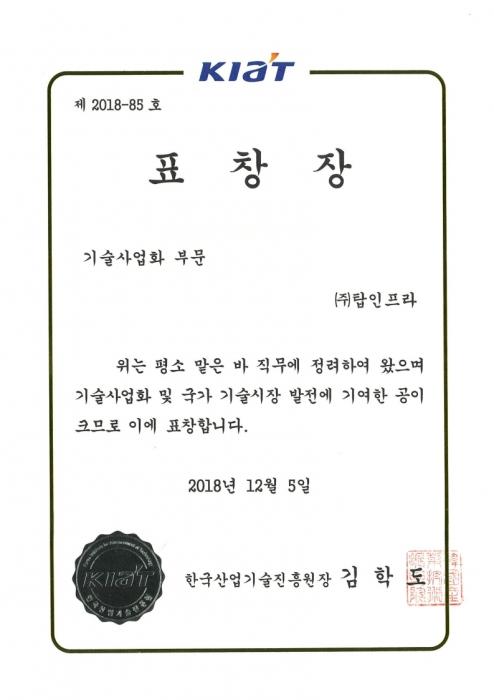 KIAT
제 2018-85 호
표 창 장
기술사업화 부문
㈜탑인프라
위는 평소 맡은 바 직무에 정려하여 왔으며
기술사업화 및 국가 기술시장 발전에 기여한 공이
크므로 이에 표창합니다.
2018년 12월 5일
Korea Institute for Advancement of Technology
KIAT
한국산업기술진흥원
한국산업기술진흥원장 김 학 도